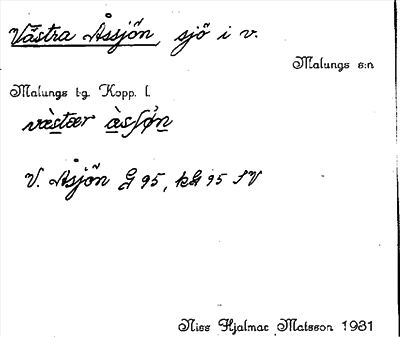 Västra Åssjön, sjö i v.
Malungs s:n
Malungs tg. Kopp. l.
V. Åsjön G 95, kG 95 SV
Nils Hjalmar Matsson 1931